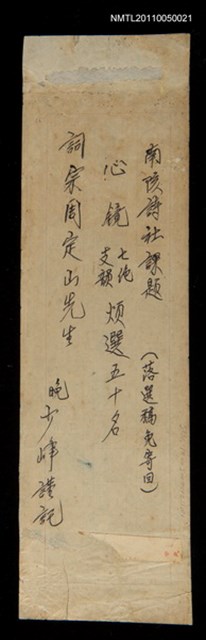 NMTL20110050021
南陔詩社課題
(落選稿免寄回)
心鏡 七絕 支韻 煩選五十名
詞宗周定山先生
晚 少峰謹託